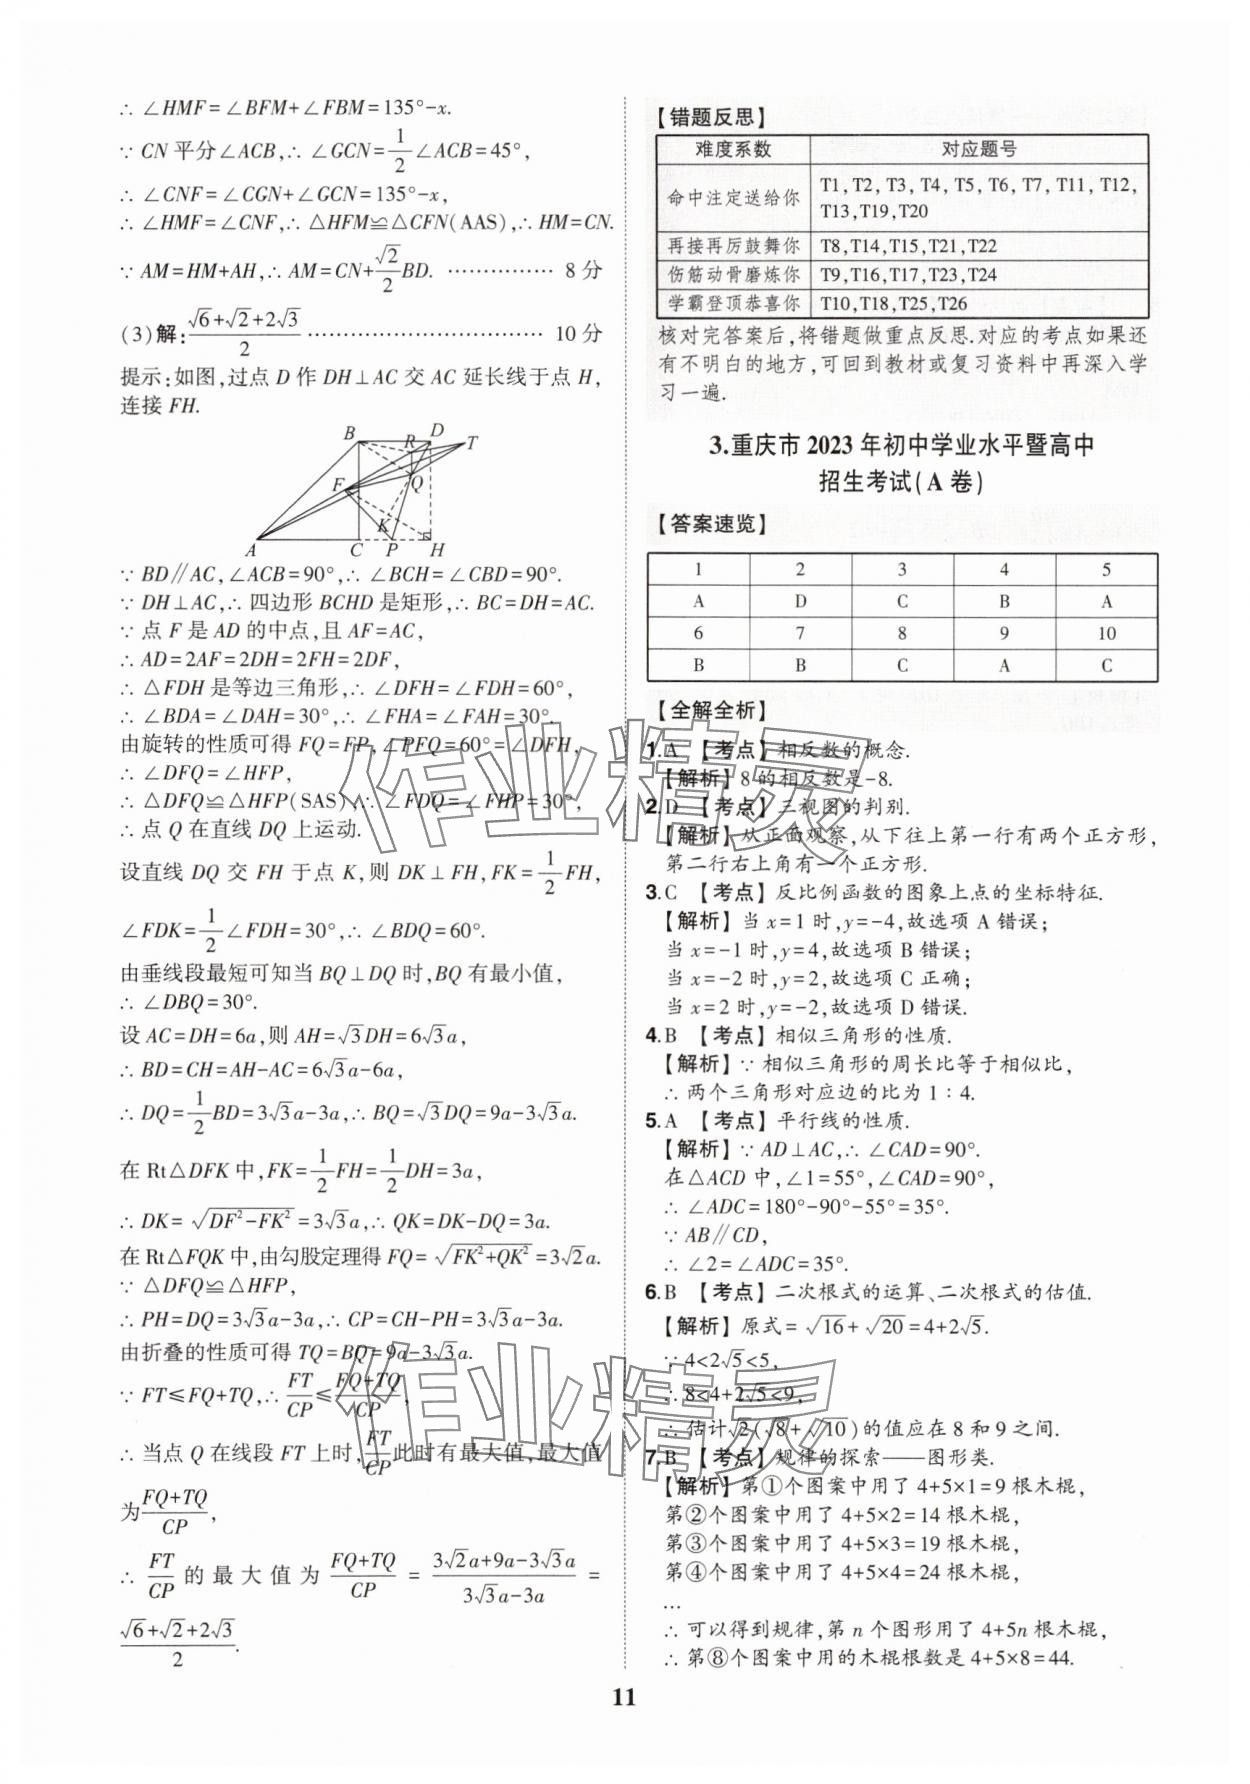 ∴ ∠HMF=∠BFM+∠FBM=135°-x.
∵ CN 平分∠ACB,∴ ∠GCN=1/2∠ACB=45°,
∴ ∠CNF=∠CGN+∠GCN=135°-x,
∴ ∠HMF=∠CNF,∴ △HFM≌△CFN(AAS),∴ HM=CN.
∵ AM=HM+AH,∴ AM=CN+√2/2 BD. …………… 8 分
(3)解:(√6+√2+2√3)/2 …………………………… 10 分
提示:如图,过点 D 作 DH⊥AC 交 AC 延长线于点 H,
连接 FH.
B D T R Q F K A C P H
∵ BD∥AC,∠ACB=90°,∴ ∠BCH=∠CBD=90°.
∵ DH⊥AC,∴ 四边形 BCHD 是矩形,∴ BC=DH=AC.
∵ 点 F 是 AD 的中点,且 AF=AC,
∴ AD=2AF=2DH=2FH=2DF,
∴ △FDH 是等边三角形,∴ ∠DFH=∠FDH=60°,
∴ ∠BDA=∠DAH=30°,∴ ∠FHA=∠FAH=30°.
由旋转的性质可得 FQ=FP,∠PFQ=60°=∠DFH,
∴ ∠DFQ=∠HFP,
∴ △DFQ≌△HFP(SAS),∴ ∠FDQ=∠FHP=30°,
∴ 点 Q 在直线 DQ 上运动.
设直线 DQ 交 FH 于点 K,则 DK⊥FH,FK=1/2 FH,
∠FDK=1/2∠FDH=30°,∴ ∠BDQ=60°.
由垂线段最短可知当 BQ⊥DQ 时,BQ 有最小值,
∴ ∠DBQ=30°.
设 AC=DH=6a,则 AH=√3DH=6√3a,
∴ BD=CH=AH-AC=6√3a-6a,
∴ DQ=1/2 BD=3√3a-3a,∴ BQ=√3DQ=9a-3√3a.
在 Rt△DFK 中,FK=1/2 FH=1/2 DH=3a,
∴ DK=√(DF²-FK²)=3√3a,∴ QK=DK-DQ=3a.
在 Rt△FQK 中,由勾股定理得 FQ=√(FK²+QK²)=3√2a.
∵ △DFQ≌△HFP,
∴ PH=DQ=3√3a-3a,∴ CP=CH-PH=3√3a-3a.
由折叠的性质可得 TQ=BQ=9a-3√3a.
∵ FT≤FQ+TQ,∴ FT/CP≤(FQ+TQ)/CP,
∴ 当点 Q 在线段 FT 上时,FT/CP此时有最大值,最大值
为(FQ+TQ)/CP,
∴ FT/CP 的最大值为 (FQ+TQ)/CP = (3√2a+9a-3√3a)/(3√3a-3a) =
(√6+√2+2√3)/2.
【错题反思】
难度系数 对应题号
命中注定送给你 T1,T2,T3,T4,T5,T6,T7,T11,T12,
T13,T19,T20
再接再厉鼓舞你 T8,T14,T15,T21,T22
伤筋动骨磨炼你 T9,T16,T17,T23,T24
学霸登顶恭喜你 T10,T18,T25,T26
核对完答案后,将错题做重点反思.对应的考点如果还
有不明白的地方,可回到教材或复习资料中再深入学
习一遍.
3.重庆市 2023 年初中学业水平暨高中
招生考试(A 卷)
【答案速览】
1 2 3 4 5
A D C B A
6 7 8 9 10
B B C A C
【全解全析】
1.A 【考点】相反数的概念.
【解析】8 的相反数是-8.
2.D 【考点】三视图的判别.
【解析】从正面观察,从下往上第一行有两个正方形,
第二行右上角有一个正方形.
3.C 【考点】反比例函数的图象上点的坐标特征.
【解析】当 x=1 时,y=-4,故选项 A 错误;
当 x=-1 时,y=4,故选项 B 错误;
当 x=-2 时,y=2,故选项 C 正确;
当 x=2 时,y=-2,故选项 D 错误.
4.B 【考点】相似三角形的性质.
【解析】∵ 相似三角形的周长比等于相似比,
∴ 两个三角形对应边的比为 1∶4.
5.A 【考点】平行线的性质.
【解析】∵ AD⊥AC,∴ ∠CAD=90°.
在△ACD 中,∠1=55°,∠CAD=90°,
∴ ∠ADC=180°-90°-55°=35°.
∵ AB∥CD,
∴ ∠2=∠ADC=35°.
6.B 【考点】二次根式的运算、二次根式的估值.
【解析】原式=√16+√20=4+2√5.
∵ 4<2√5<5,
∴ 8<4+2√5<9,
∴ 估计√2(√8+√10)的值应在 8 和 9 之间.
7.B 【考点】规律的探索——图形类.
【解析】第①个图案中用了 4+5×1=9 根木棍,
第②个图案中用了 4+5×2=14 根木棍,
第③个图案中用了 4+5×3=19 根木棍,
第④个图案中用了 4+5×4=24 根木棍,
…
∴ 可以得到规律,第 n 个图形用了 4+5n 根木棍,
∴ 第⑧个图案中用的木棍根数是 4+5×8=44.
11
作业精灵
作业精灵